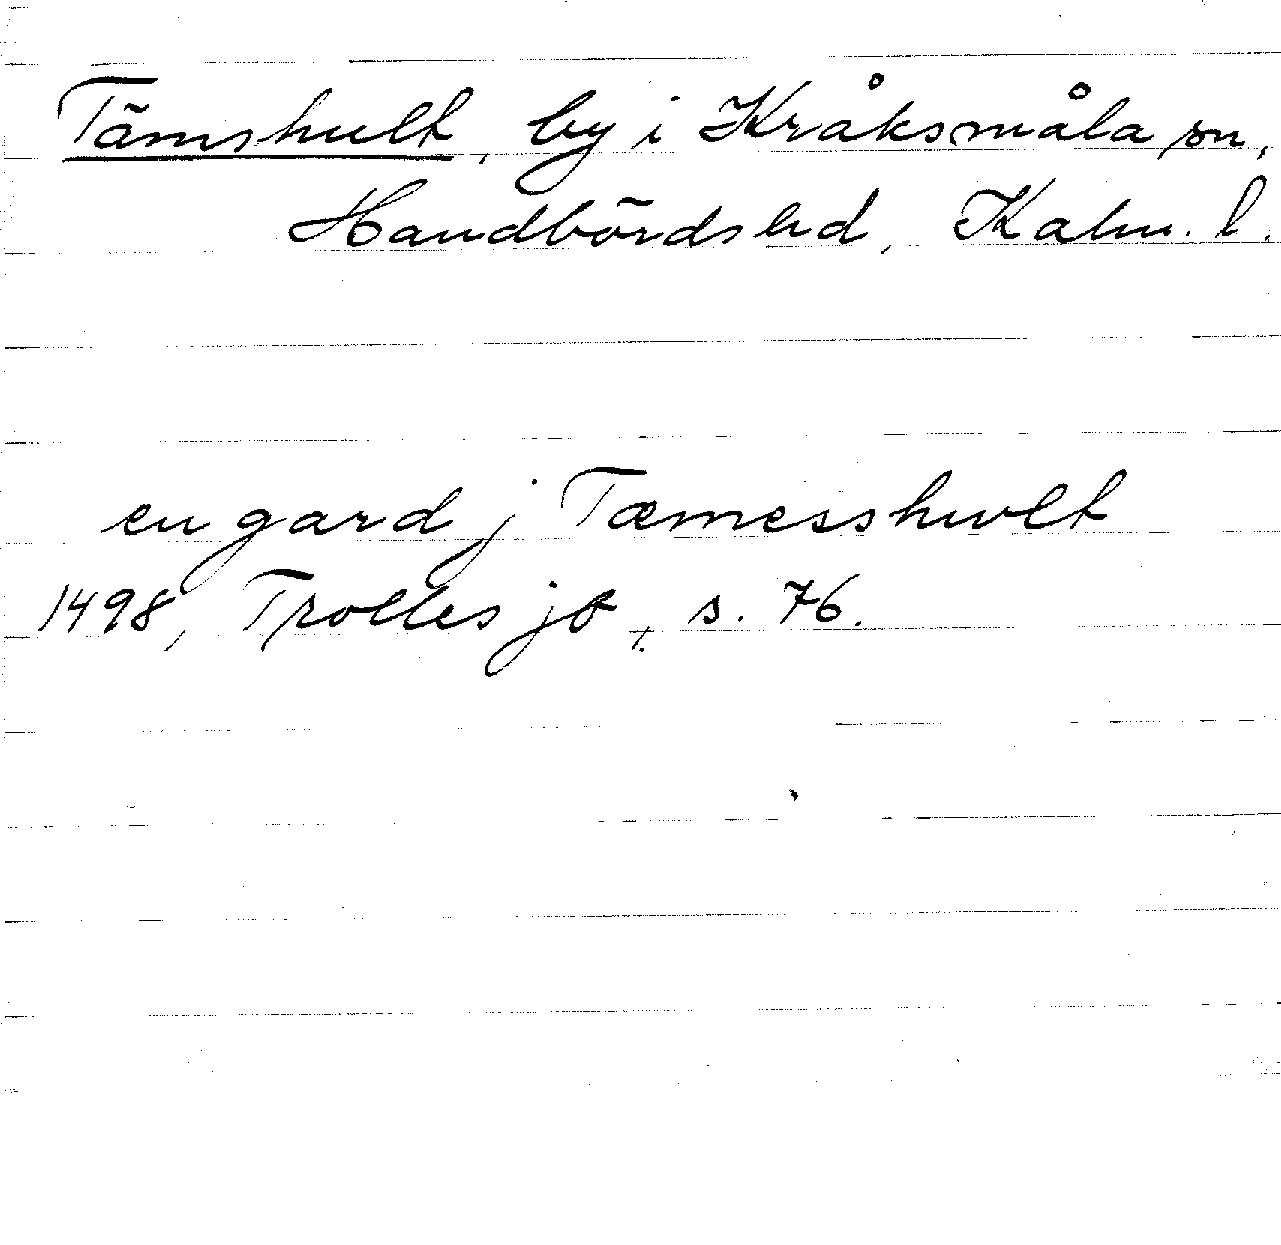 Tämshult, by i Kråksmåla sn,
Handbörds hd, Kalm. l.
en gard j Tæmesshwlt
1498, Trolles jb, s. 76.